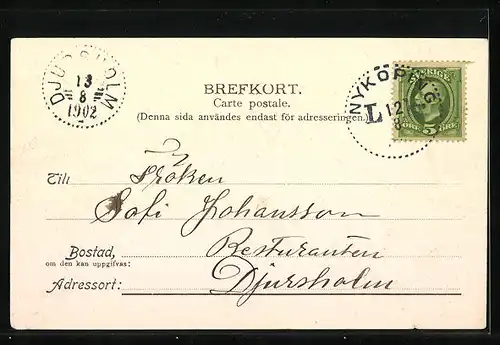 DJURSHOLM
13
8
1902
BREFKORT.
Carte postale.
(Denna sida användes endast för adresseringen.)
NYKÖPING
L
12
8
SVERIGE
5 ÖRE
Till Fröken
Sofi Johansson
Bostad, Resturanten
om den kan uppgifvas:
Adressort: Djursholm